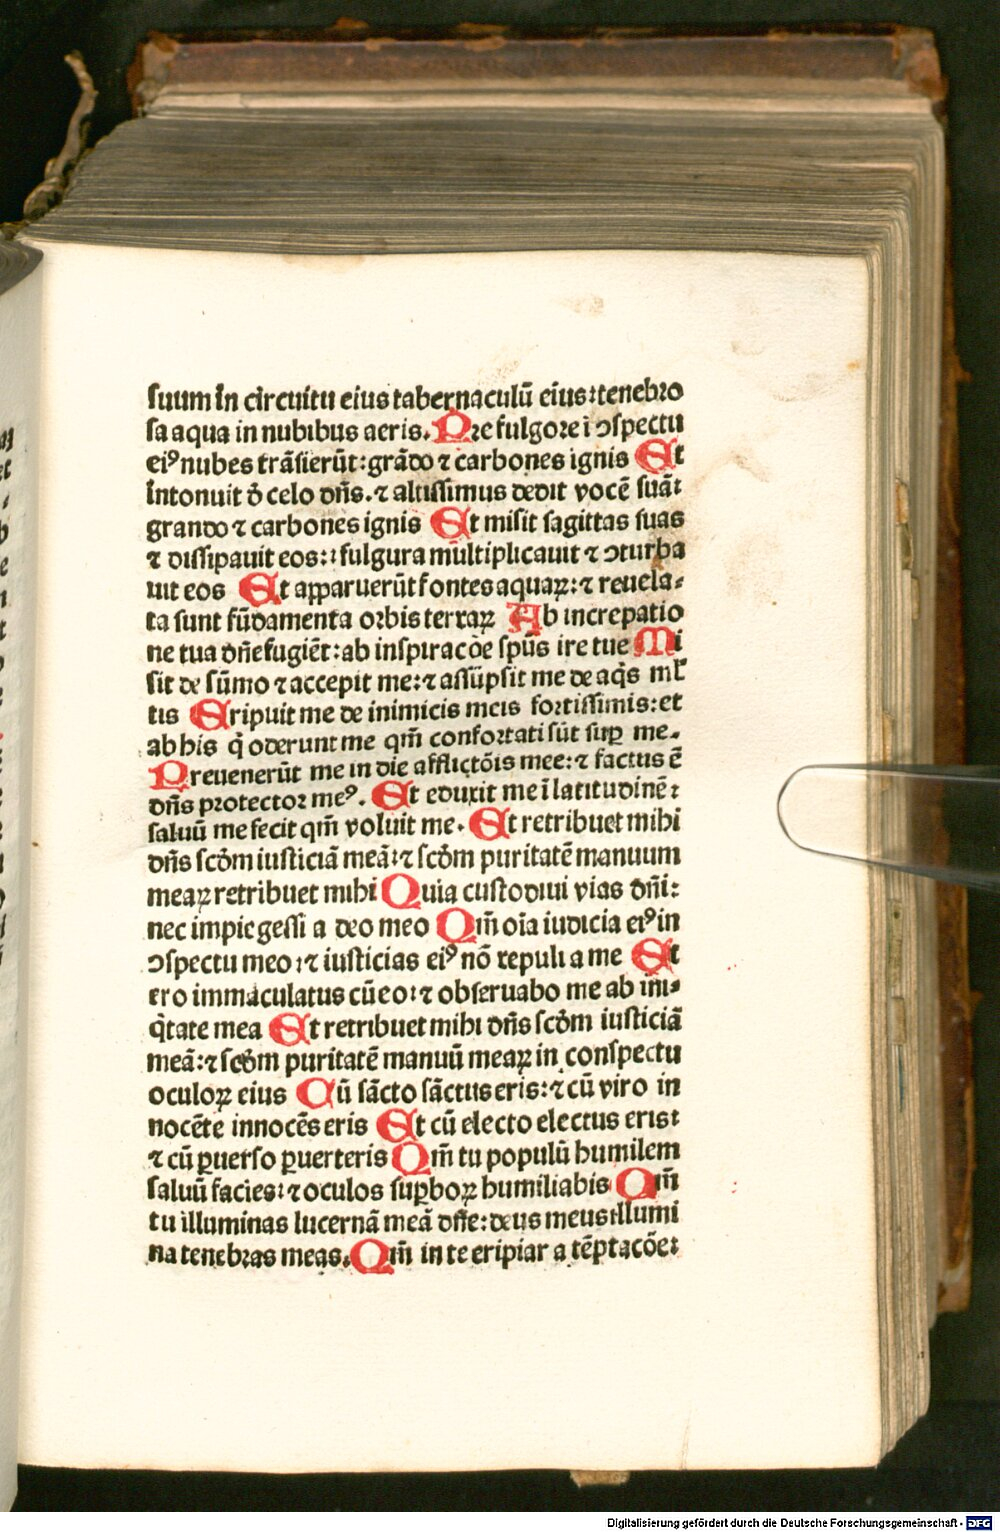 suum in circuitu eius tabernaculū eius: tenebro
sa aqua in nubibus aeris. Pre fulgore i ↄspectu
ei⁹ nubes trāsierūt: grādo ⁊ carbones ignis Et
intonuit đ celo dn̄s. ⁊ altissimus dedit vocē suā:
grando ⁊ carbones ignis Et misit sagittas suas
⁊ dissipauit eos: : fulgura multiplicauit ⁊ ↄturba
uit eos Et apparuerūt fontes aquaꝝ: ⁊ reuela-
ta sunt fūdamenta orbis terraꝝ Ab increpatio
ne tua dn̄e fugiēt: ab inspiracōe sp̄us ire tue Mi
sit de sūmo ⁊ accepit me: ⁊ assūpsit me de aq̄s ml̄
tis Eripuit me de inimicis meis fortissimis: et
ab his q̄ oderunt me qm̄ confortati sūt suꝑ me.
Preuenerūt me in die afflictōis mee: ⁊ factus ē
dn̄s protector me⁹. Et eduxit me ī latitudinē:
saluū me fecit qm̄ voluit me. Et retribuet mihi
dn̄s scđm iusticiā meā: ⁊ scđm puritatē manuum
meaꝝ retribuet mihi Quia custodiui vias dn̄i:
nec impie gessi a deo meo Qm̄ oīa iudicia ei⁹ in
ↄspectu meo: ⁊ iusticias ei⁹ nō repuli a me Et
ero immaculatus cū eo: ⁊ obseruabo me ab ini-
q̄tate mea Et retribuet mihi dn̄s scđm iusticiā
meā: ⁊ scđm puritatē manuū meaꝝ in conspectu
oculoꝝ eius Cū sācto sāctus eris: ⁊ cū viro in
nocēte innocēs eris Et cū electo electus eris:
⁊ cū ꝑuerso ꝑuerteris Qm̄ tu populū humilem
saluū facies: ⁊ oculos suꝑboꝝ humiliabis Qm̄
tu illuminas lucernā meā dn̄e: deus meus illumi
na tenebras meas. Qm̄ in te eripiar a tēptacōe:
Digitalisierung gefördert durch die Deutsche Forschungsgemeinschaft - DFG